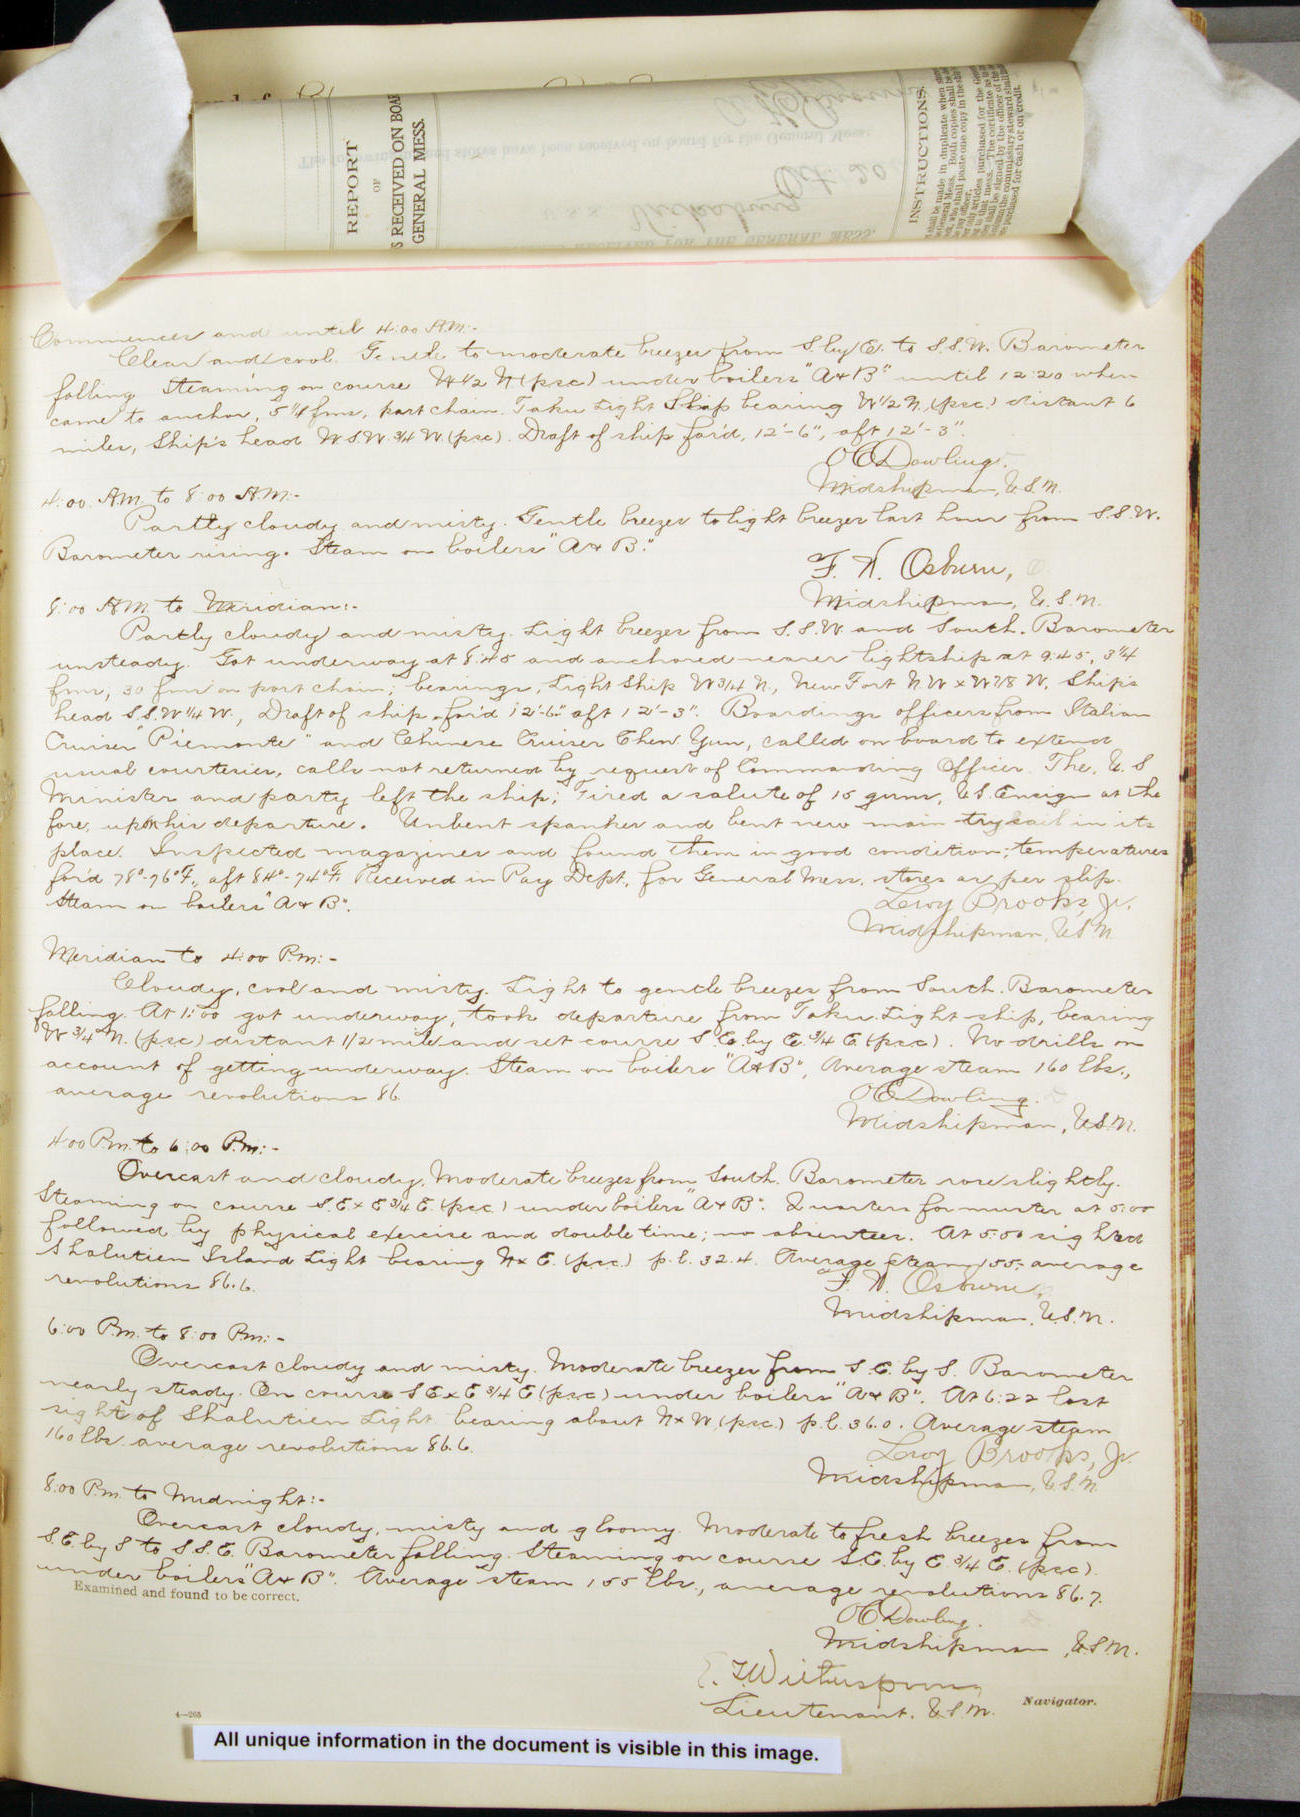 REPORT
OF
S RECEIVED ON BOAR
GENERAL MESS.
INSTRUCTIONS.
Commences and until 4:00 A.M:-
Clear and cool. Gentle to moderate breezes from S. by E. to S.S.W. Barometer
falling. Steaming on course W ½ N (psc) under boilers "A & B" until 12:20 when
came to anchor, 5 ¼ fms, port chain. Taku Light Ship bearing W ½ N. (psc.) distant 6
miles, Ship's head W.S.W. ¾ W. (psc). Draft of ship for'd, 12'-6", aft 12'-3".
O C Dowling.
Midshipman, U.S.N.
4:00 A.M. to 8:00 A.M:-
Partly cloudy and misty. Gentle breezes to light breezes last hour from S.S.W.
Barometer rising. Steam on boilers "A & B."
F. N. Osburn,
Midshipman, U.S.N.
8:00 A.M. to Meridian:-
Partly cloudy and misty. Light breezes from S.S.W and South. Barometer
unsteady. Got underway at 8:45 and anchored nearer lightship at 9:45, 3 ¼
fms, 30 fms on port chain; bearings, Light Ship W 3/4 N, New Fort N W x W 7/8 W, Ship's
head S.S.W ¼ W., Draft of ship for'd 12'-6" aft 12'-3". Boardings officers from Italian
Cruiser "Piemonte" and Chinese Cruiser Chen Yun, called on board to extend
usual courtesies, calls not returned by request of Commanding Officer. The U.S
Minister and party left the ship; Fired a salute of 15 guns, U.S. Ensign at the
fore, upon his departure. Unbent spanker and bent new main trysail in its
place. Inspected magazines and found them in good condition; temperatures
for'd 78°-76°F., aft 84°-74°F. Received in Pay Dept., for General Mess, stores as per slip.
Steam on boilers "A & B".
Leroy Brooks, Jr.
Midshipman, U.S.N
Meridian to 4:00 P.M:-
Cloudy, cool and misty. Light to gentle breezes from South. Barometer
falling. At 1:00 got underway, took departure from Taku Light-ship, bearing
W 3/4 N. (psc) distant 1/2 mile and set course S.E. by E. 3/4 E. (psc). No drills on
account of getting underway. Steam on boilers "A & B", Average steam 160 lbs.,
average revolutions 86.
O C Dowling.
Midshipman, U.S.N.
4:00 P.m. to 6:00 P.m:-
Overcast and cloudy. Moderate breezes from South. Barometer rose slightly.
Steaming on course S.E x E 3/4 E. (psc) under boilers "A & B". Quarters for muster at 5:00
followed by physical exercise and double time; no absentees. At 5:50 sighted
Shalutien Island Light bearing N x E. (psc) p.l. 32.4. Average steam 155- average
revolutions 86.6.
F. N. Osburn,
Midshipman, U.S.N.
6:00 P.m. to 8:00 P.m:-
Overcast cloudy and misty. Moderate breezes from S.E. by S. Barometer
nearly steady. On course S E x E 3/4 E (psc) under boilers "A & B". At 6:22 lost
sight of Shalutien Light bearing about N x W (psc.) p.l. 36.0. Average steam
160 lbs. average revolutions 86.6.
Leroy Brooks, Jr.
Midshipman, U.S.N.
8:00 P.m. to Midnight:-
Overcast cloudy, misty and gloomy. Moderate to fresh breezes from
S.E. by S to S.S.E. Barometer falling. Steaming on course S.E. by E. 3/4 E. (psc).
under boilers "A & B". Average steam 155 lbs., average revolutions 86.7.
Examined and found to be correct.
O C Dowling.
Midshipman, U.S.N.
Lieutenant, U.S.N.
Navigator.
4—265
All unique information in the document is visible in this image.